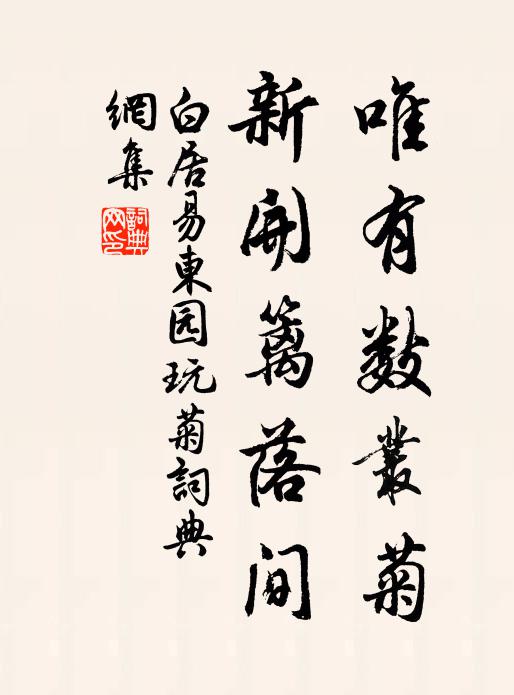 唯有数叢菊
新開籬落間
白居易東园玩菊詞典
網集
詞典
网印